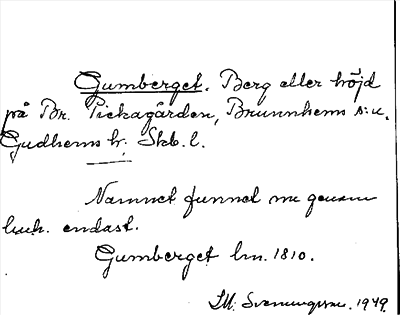 Gumberget. Berg eller höjd
på Br. Pickagården, Brunnhems s:n.
Gudhems hr. Skb. l.
Namnet funnet me genom
lush. endast.
Gumberget lm. 1810.
1949.